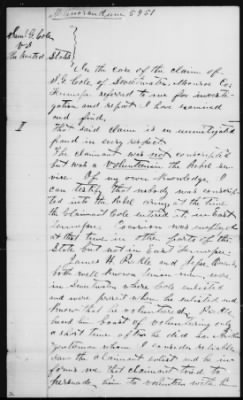 Memorandum 5951
Saml G. Cole
vs
The United States
In the case of the claim of
S. G. Cole, of Sweetwater, Monroe Co
Tennessee referred to me for investi-
gation and report I have examined
and find,
I
That said claim is an unmitigated
fraud in every respect.
The claimant was not conscripted
but was a Volunteer in the Rebel ser-
vice. Of my own knowledge I
can testify that nobody was conscrip-
ted into the Rebel army at the time
the Claimant entered it in East
Tennessee.
at that time in other parts of the
State but not in East Tennessee.
James H. Pickle and
both well known Union men, were
in Sweetwater where Cole enlisted
and were present when he enlisted and
know that he volunteered. Pickle
heard him boast of volunteering only
a short time after he did so. Another
gentleman whom I consider reliable
saw the claimant enlist and he in-
forms me that claimant tried to
persuade him to volunteer with him